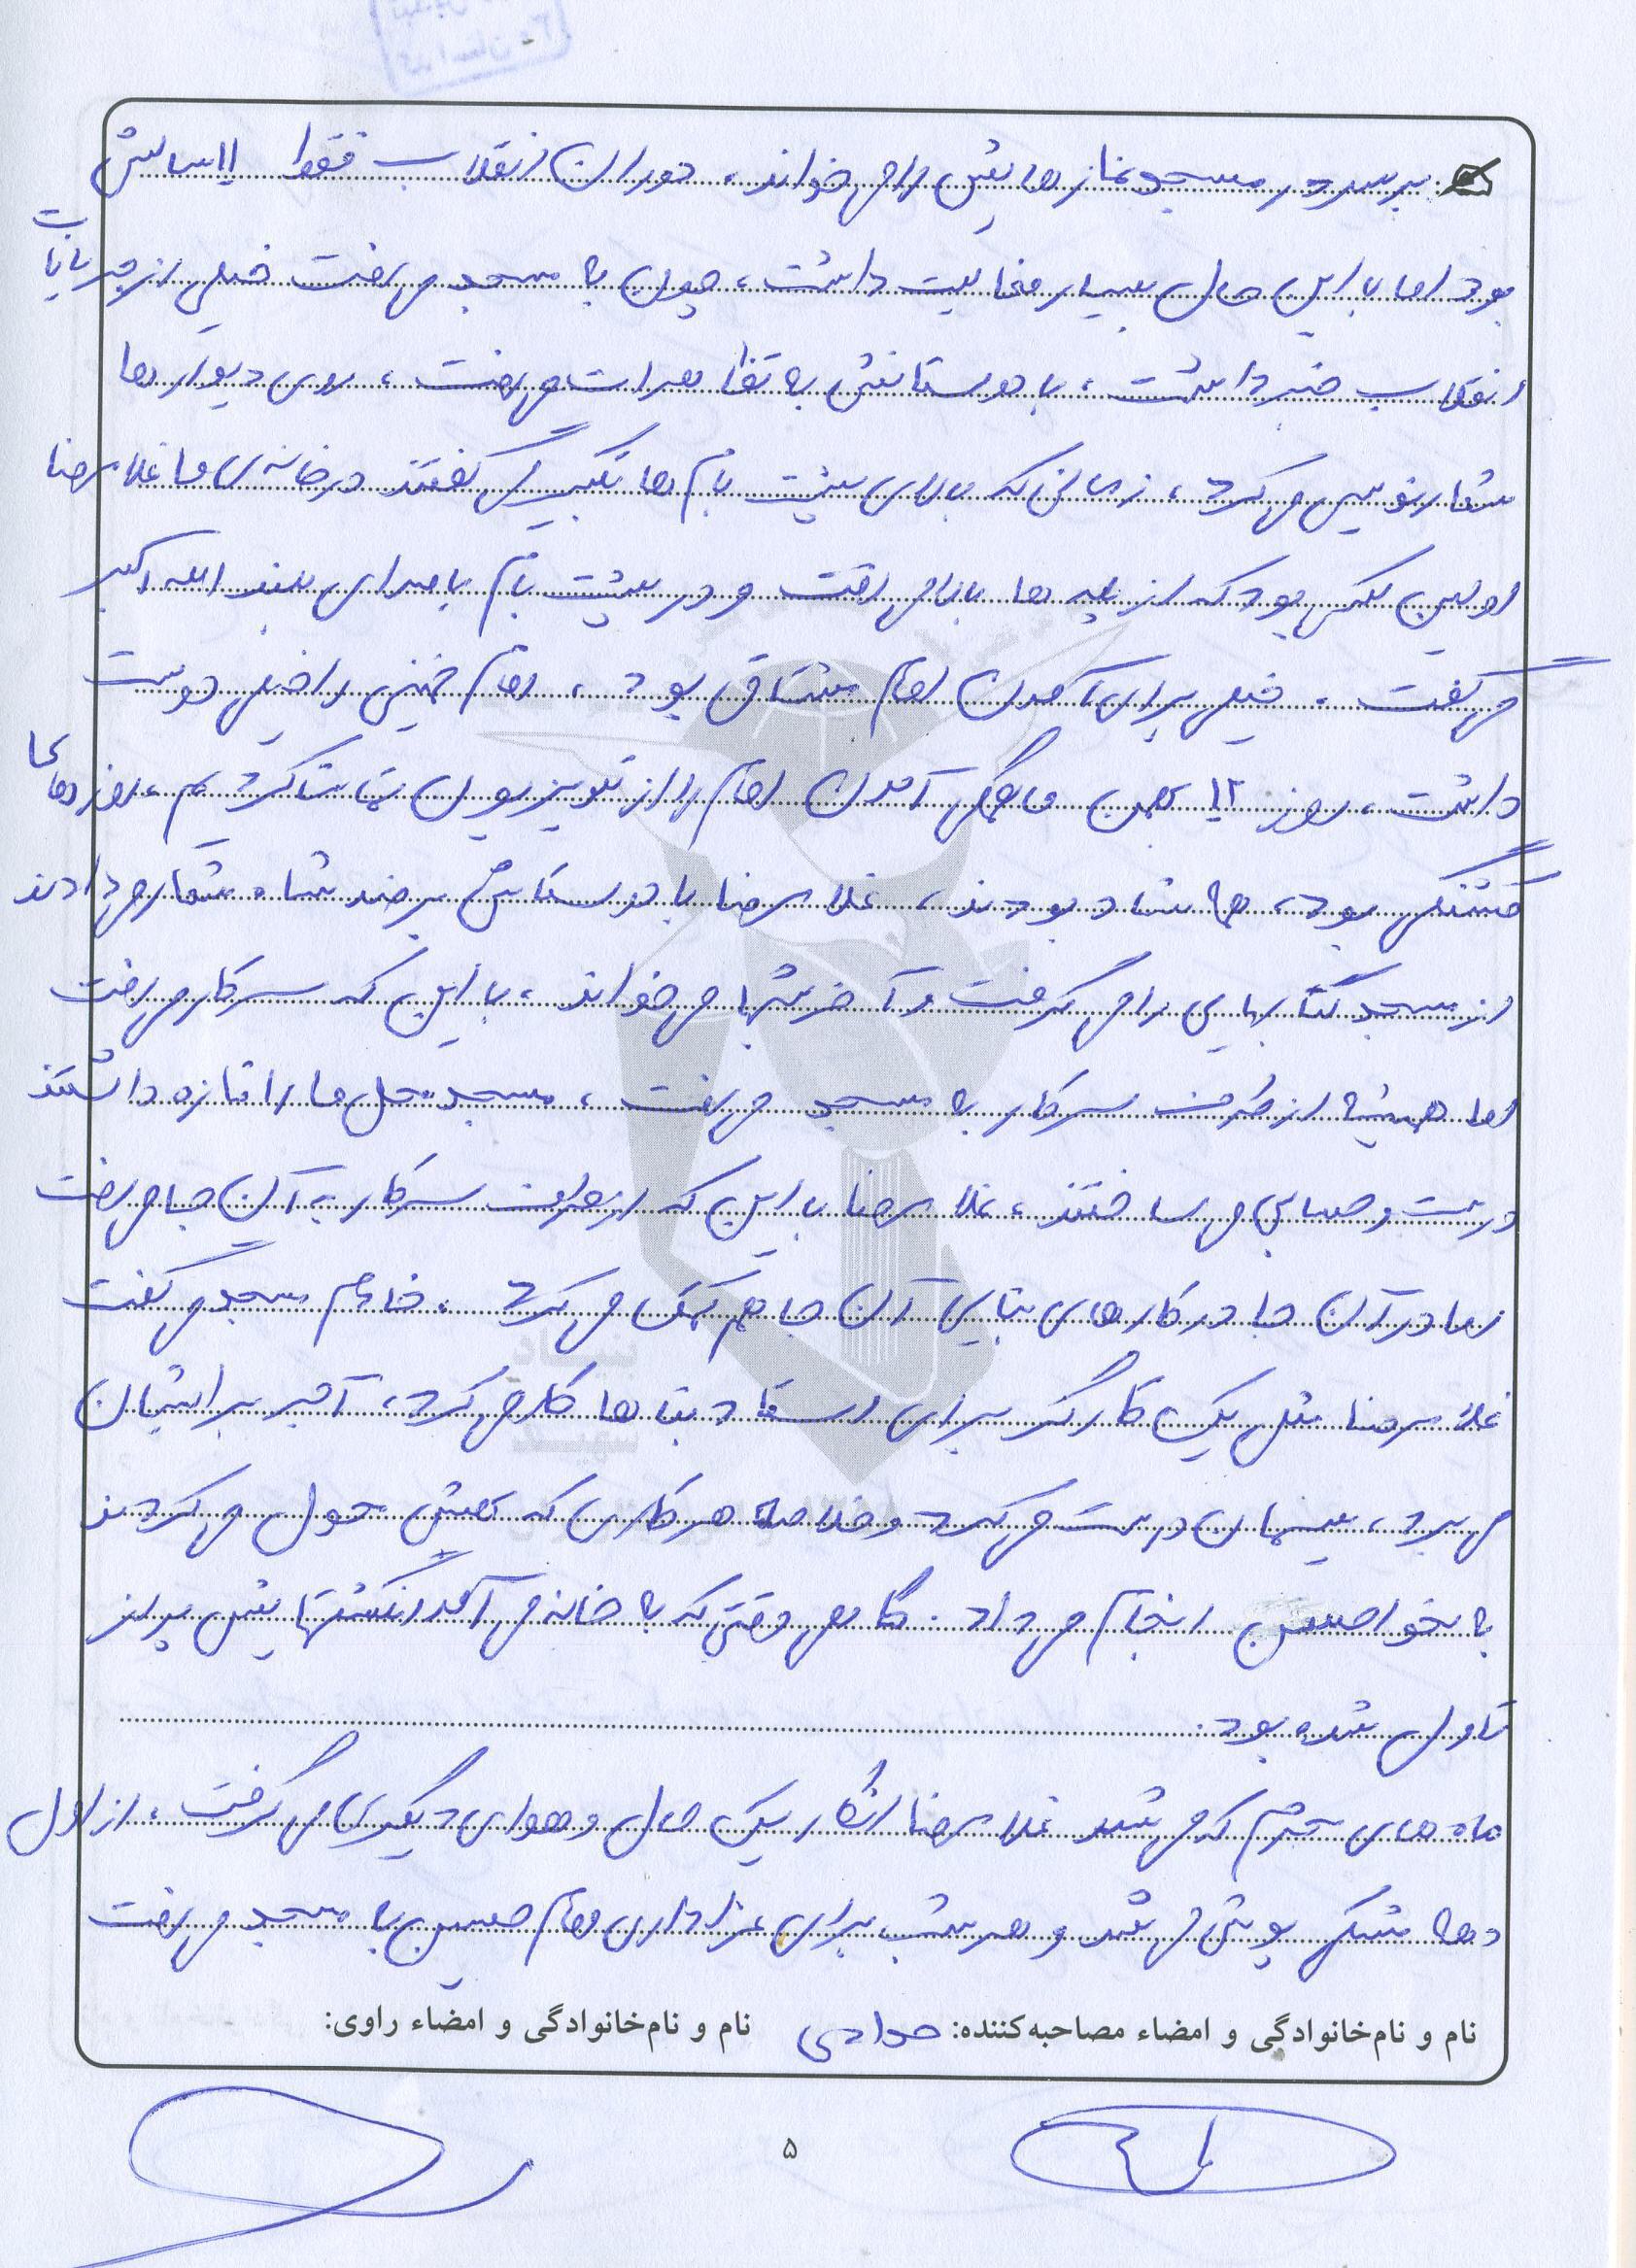 برسد در مسجد نمازهایش را می خواند، دوران انقلاب فقط ۱۱ سالش
بود اما با این حال بسیار فعالیت داشت، چون به مسجد می رفت خیلی از جریانات
انقلاب خبر داشت، با دوستانش به تظاهرات می رفت، روی دیوارها
شعارنویسی می کرد، زمانی که بالای پشت بام ها تکبیر می گفتند در خانه ی ما غلامرضا
اولین کسی بود که از پله ها بالا می رفت و در پشت بام با صدای بلند الله اکبر
می گفت. خیلی برای آمدن امام مشتاق بود، امام خمینی را خیلی دوست
داشت، روز ۱۲ بهمن ما همگی آمدن امام را از تلویزیون تماشا کردیم، روزهای
قشنگی بود، همه شاد بودند، غلامرضا با دوستانش بر ضد شاه شعار می دادند
از مسجد کتابهایی را می گرفت و آخر شبها می خواند، با این که سر کار می رفت
اما همیشه از طرف سر کار به مسجد می رفت، مسجد محل ما را تازه داشتند
درست و حسابی می ساختند، غلامرضا با این که از طرف سر کار به آن جا می رفت
اما در آن جا در کارهای بنایی آن جا هم کمک می کرد. خادم مسجد می گفت
غلامرضا مثل یک کارگر برای استاد بناها کار می کرد، آجر برایشان
می برد، سیمان درست می کرد و خلاصه هر کاری که بهش محول می کردند
به نحو احسن انجام می داد. گاهی وقتی که به خانه می آمد انگشتهایش پر از
تاول شده بود.
ماه های محرم که می شد غلامرضا انگار یک حال و هوای دیگری می گرفت، از اول
دهه مشکی پوش می شد و هر شب برای عزاداری امام حسین به مسجد می رفت
نام و نام‌خانوادگی و امضاء مصاحبه‌کننده: جوادی نام و نام‌خانوادگی و امضاء راوی:
۵